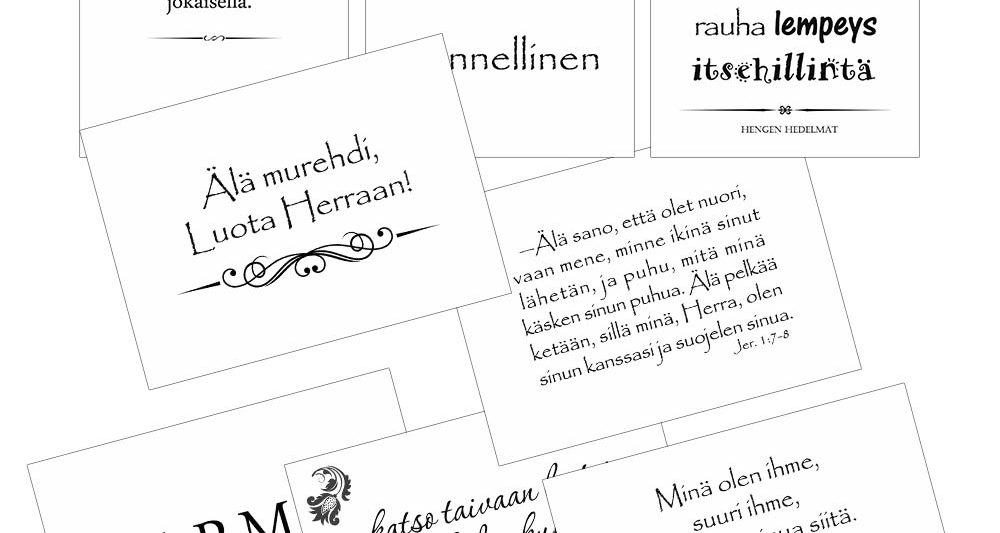 jokaisella.
nnellinen
rauha lempeys
itsehillintä
HENGEN HEDELMAT
Älä murehdi,
Luota Herraan!
–Älä sano, että olet nuori,
vaan mene, minne ikinä sinut
lähetän, ja puhu, mitä minä
käsken sinun puhua. Älä pelkää
ketään, sillä minä, Herra, olen
sinun kanssasi ja suojelen sinua.
Jer. 1:7-8
katso taivaan
Minä olen ihme,
suuri ihme,
siitä.